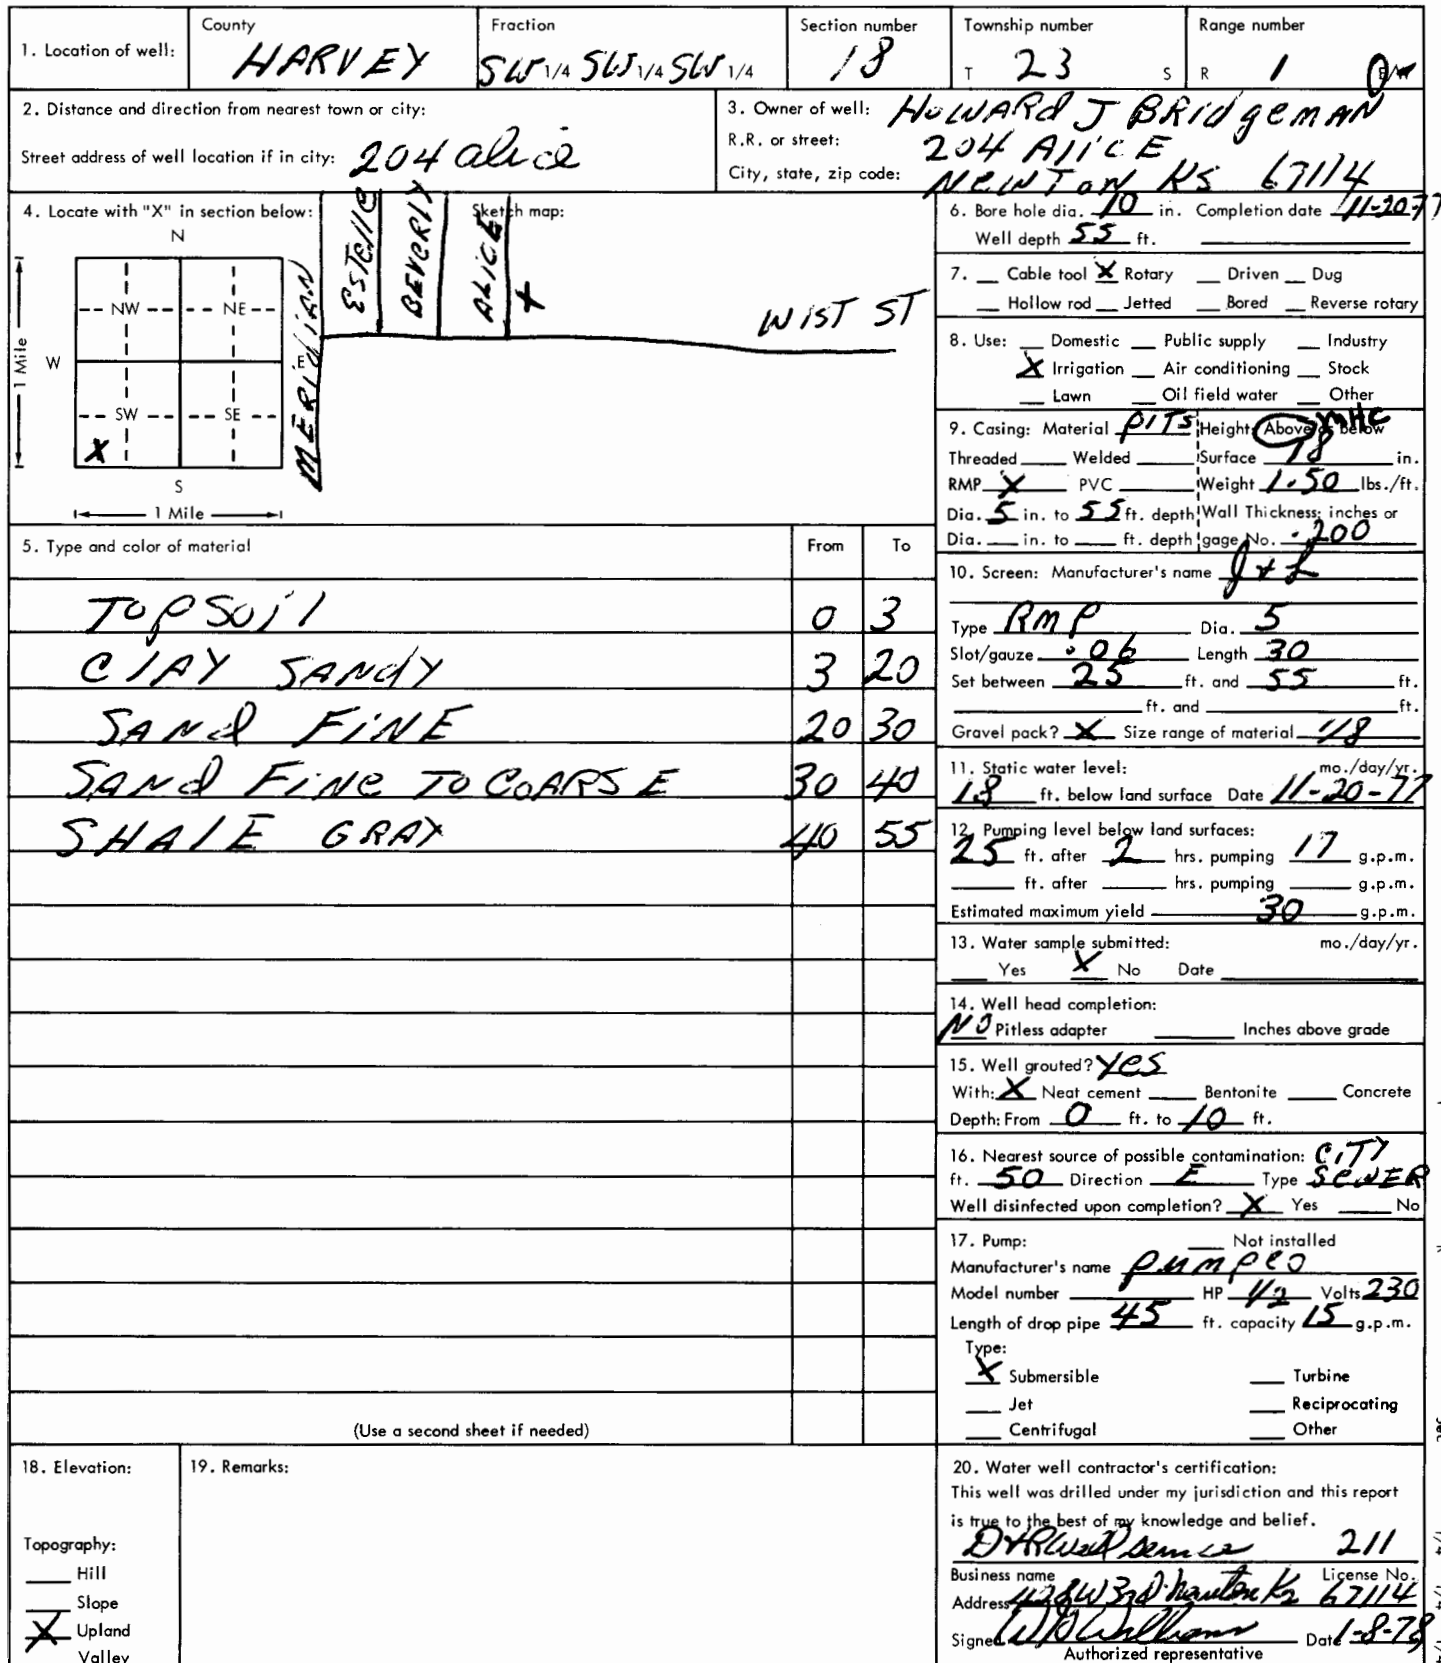 1. Location of well:
County
HARVEY
Fraction
SW 1/4 SW 1/4 SW 1/4
Section number
18
Township number
T 23 S
Range number
R 1 E/W
2. Distance and direction from nearest town or city:
Street address of well location if in city: 204 alice
3. Owner of well: HOWARd J BRidgeMAN
R.R. or street: 204 AlicE
City, state, zip code: NEWTON KS 67114
4. Locate with "X" in section below:
Sketch map:
N
NW NE
W E
SW SE
X
S
1 Mile
1 Mile
MERIDIAN
ESTELLE
BEVERLY
ALICE
X
WIST ST
5. Type and color of material From To
TOPSOil 0 3
ClAY SANdY 3 20
SANd FiNE 20 30
SANd FiNE TO COARSE 30 40
SHAlE GRAY 40 55
(Use a second sheet if needed)
6. Bore hole dia. 10 in. Completion date 11-20-77
Well depth 55 ft.
7. Cable tool X Rotary Driven Dug
Hollow rod Jetted Bored Reverse rotary
8. Use: Domestic Public supply Industry
X Irrigation Air conditioning Stock
Lawn Oil field water Other
MHC
9. Casing: Material PITS Height: Above or below
Threaded Welded Surface 18 in.
RMP X PVC Weight 1.50 lbs./ft.
Dia. 5 in. to 55 ft. depth Wall Thickness: inches or
Dia. in. to ft. depth gage No. .200
10. Screen: Manufacturer's name J & L
Type RMP Dia. 5
Slot/gauze .06 Length 30
Set between 25 ft. and 55 ft.
ft. and ft.
Gravel pack? X Size range of material 1/8
11. Static water level: mo./day/yr.
18 ft. below land surface Date 11-20-77
12. Pumping level below land surfaces:
25 ft. after 2 hrs. pumping 17 g.p.m.
ft. after hrs. pumping g.p.m.
Estimated maximum yield 30 g.p.m.
13. Water sample submitted: mo./day/yr.
Yes X No Date
14. Well head completion:
NO Pitless adapter Inches above grade
15. Well grouted? YES
With: X Neat cement Bentonite Concrete
Depth: From 0 ft. to 10 ft.
16. Nearest source of possible contamination: CITY
ft. 50 Direction E Type SEWER
Well disinfected upon completion? X Yes No
17. Pump: Not installed
Manufacturer's name PumpCO
Model number HP 1/2 Volts 230
Length of drop pipe 45 ft. capacity 15 g.p.m.
Type:
X Submersible Turbine
Jet Reciprocating
Centrifugal Other
18. Elevation:
Topography:
Hill
Slope
X Upland
Valley
19. Remarks:
20. Water well contractor's certification:
This well was drilled under my jurisdiction and this report
is true to the best of my knowledge and belief.
D&R Well Service 211
Business name License No.
Address 428 W 3rd Newton Ks 67114
Signed Williams Date 1-8-78
Authorized representative